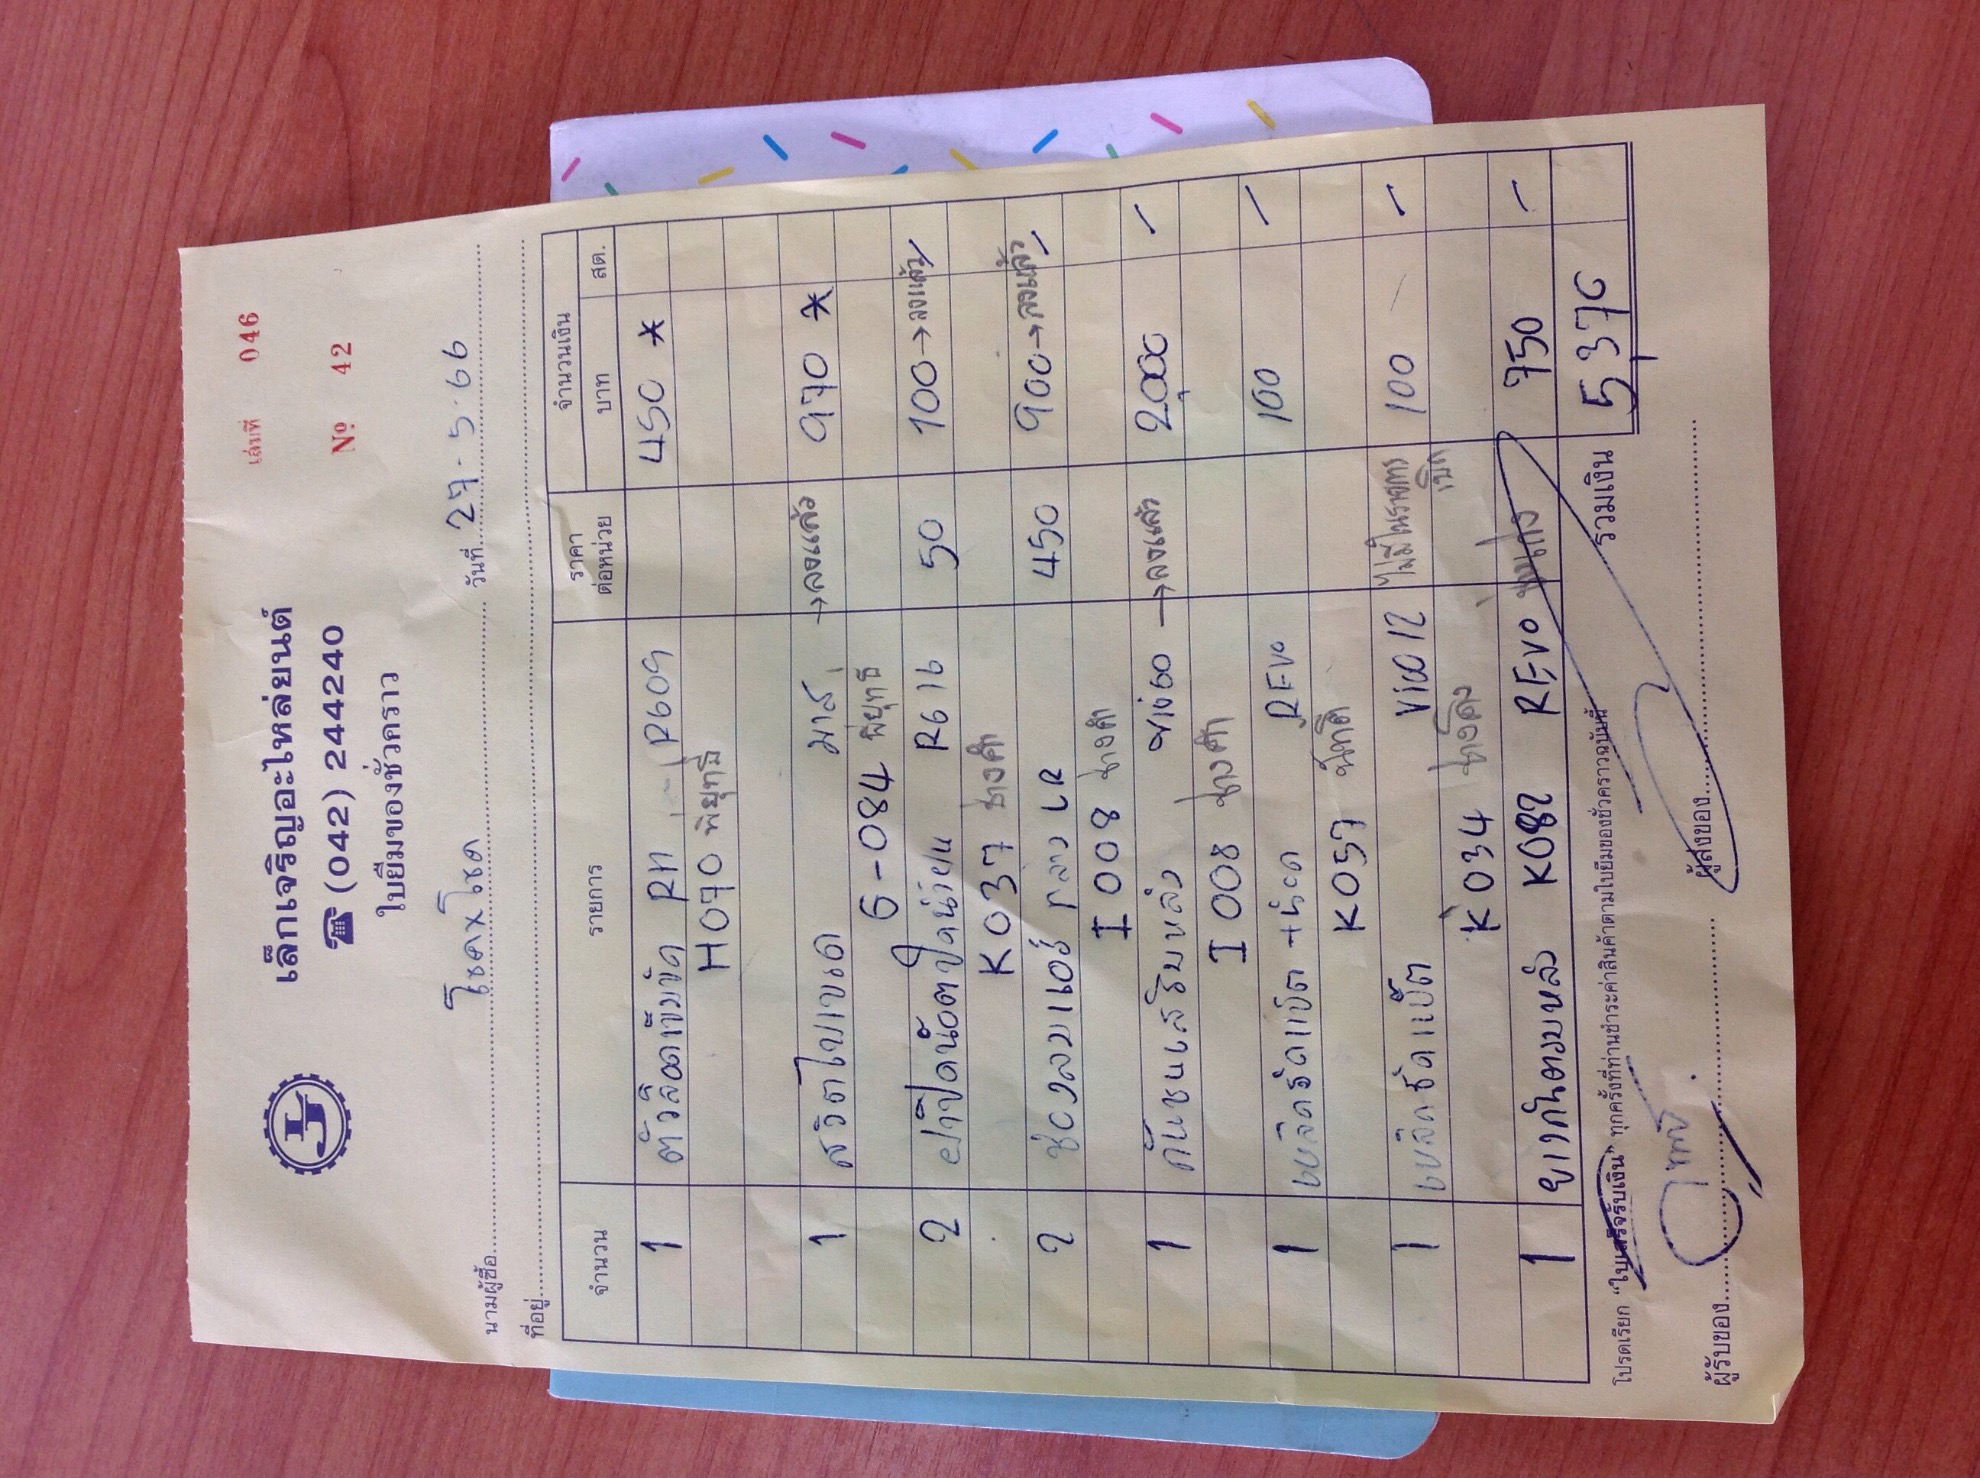 เล่มที่ 046
เล็กเจริญอะไหล่ยนต์
☎ (042) 244240
Nº 42
ใบยืมของชั่วคราว
นามผู้ซื้อ โชคxโชค วันที่ 27.5.66
ที่อยู่
จำนวน รายการ ราคาต่อหน่วย จำนวนเงิน
บาท สต.
1 RH R609 450 *
H070 พิยุทธิ์
1 สวิตไฟเบรค มาส์ →ลงแล้ว 970 *
G-084 พิยุทธิ์
2 ฝาปิดน๊อตปัดน้ำฝน R616 50 100→ลงแล้ว
K037 ช่างคำ
2 ช่องลมแอร์ กลาง LR 450 900→ลงแล้ว
I 008 ช่างคำ
1 กันชนเสริมหลัง →ลงแล้ว 2,000 -
I 008 ช่างคำ
1 เหล็กรัดแบ็ต REVO 100 -
K057
1 เหล็กรัดแบ็ต Vigo 12 ไม่มีในรายการเบิก 100 -
K034
1 K082 REVO 750 -
โปรดเรียก "ใบเสร็จรับเงิน" ทุกครั้งที่ท่านชำระค่าสินค้าตามใบยืมของชั่วคราวฉบับนี้
รวมเงิน 5,370
ผู้รับของ ผู้ส่งของ